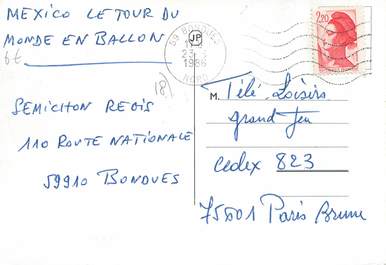 MEXICO LE TOUR DU
MONDE EN BALLON
6€
18)
SEMICHON REGIS
110 ROUTE NATIONALE
59910 BONDUES
59 BONDUES
JP
23 -
1986
NORD
2,20
M. Télé Loisirs
grand Jeu
Cedex 823
75601 Paris Brune